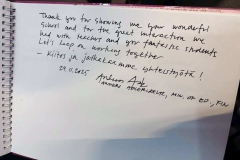 Thank you for showing me your wonderful
school and for the great interaction we
had with teachers and your fantastic students
Let's keep on working together
- Kiitos ja jatkakaamme yhteistyötä!
09.11.2025
MIN. OF ED., FIN